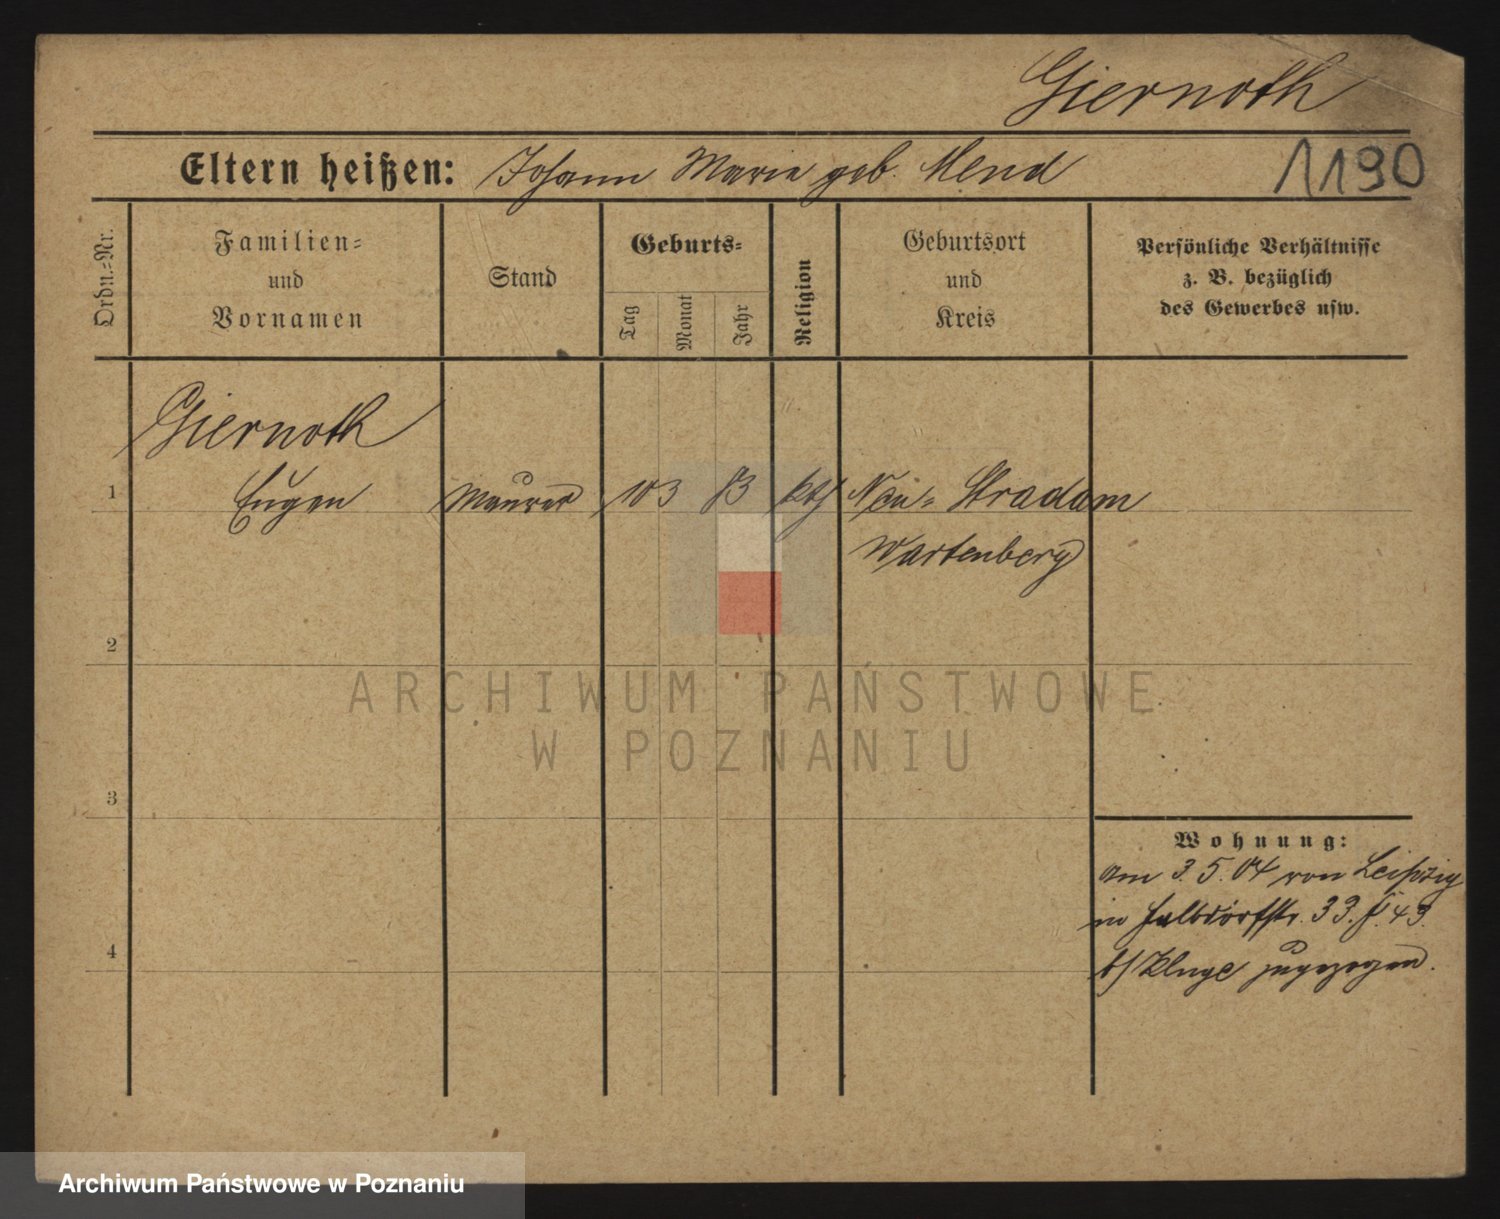 Giernoth
Eltern heißen: Johann Marie geb. Mend
1190
Ordn.-Nr.
Familien-
und
Vornamen
Stand
Geburts-
Tag
Monat
Jahr
Religion
Geburtsort
und
Kreis
Persönliche Verhältnisse
z. B. bezüglich
des Gewerbes usw.
Giernoth
1 Eugen Maurer 10 3 83 kth Neu- Stradam
Wartenberg
2
3
4
Wohnung:
am 3. 5. 04 von Leipzig
in 33. 43.
b/ Kluge zugezogen.
ARCHIWUM PAŃSTWOWE
W POZNANIU
Archiwum Państwowe w Poznaniu